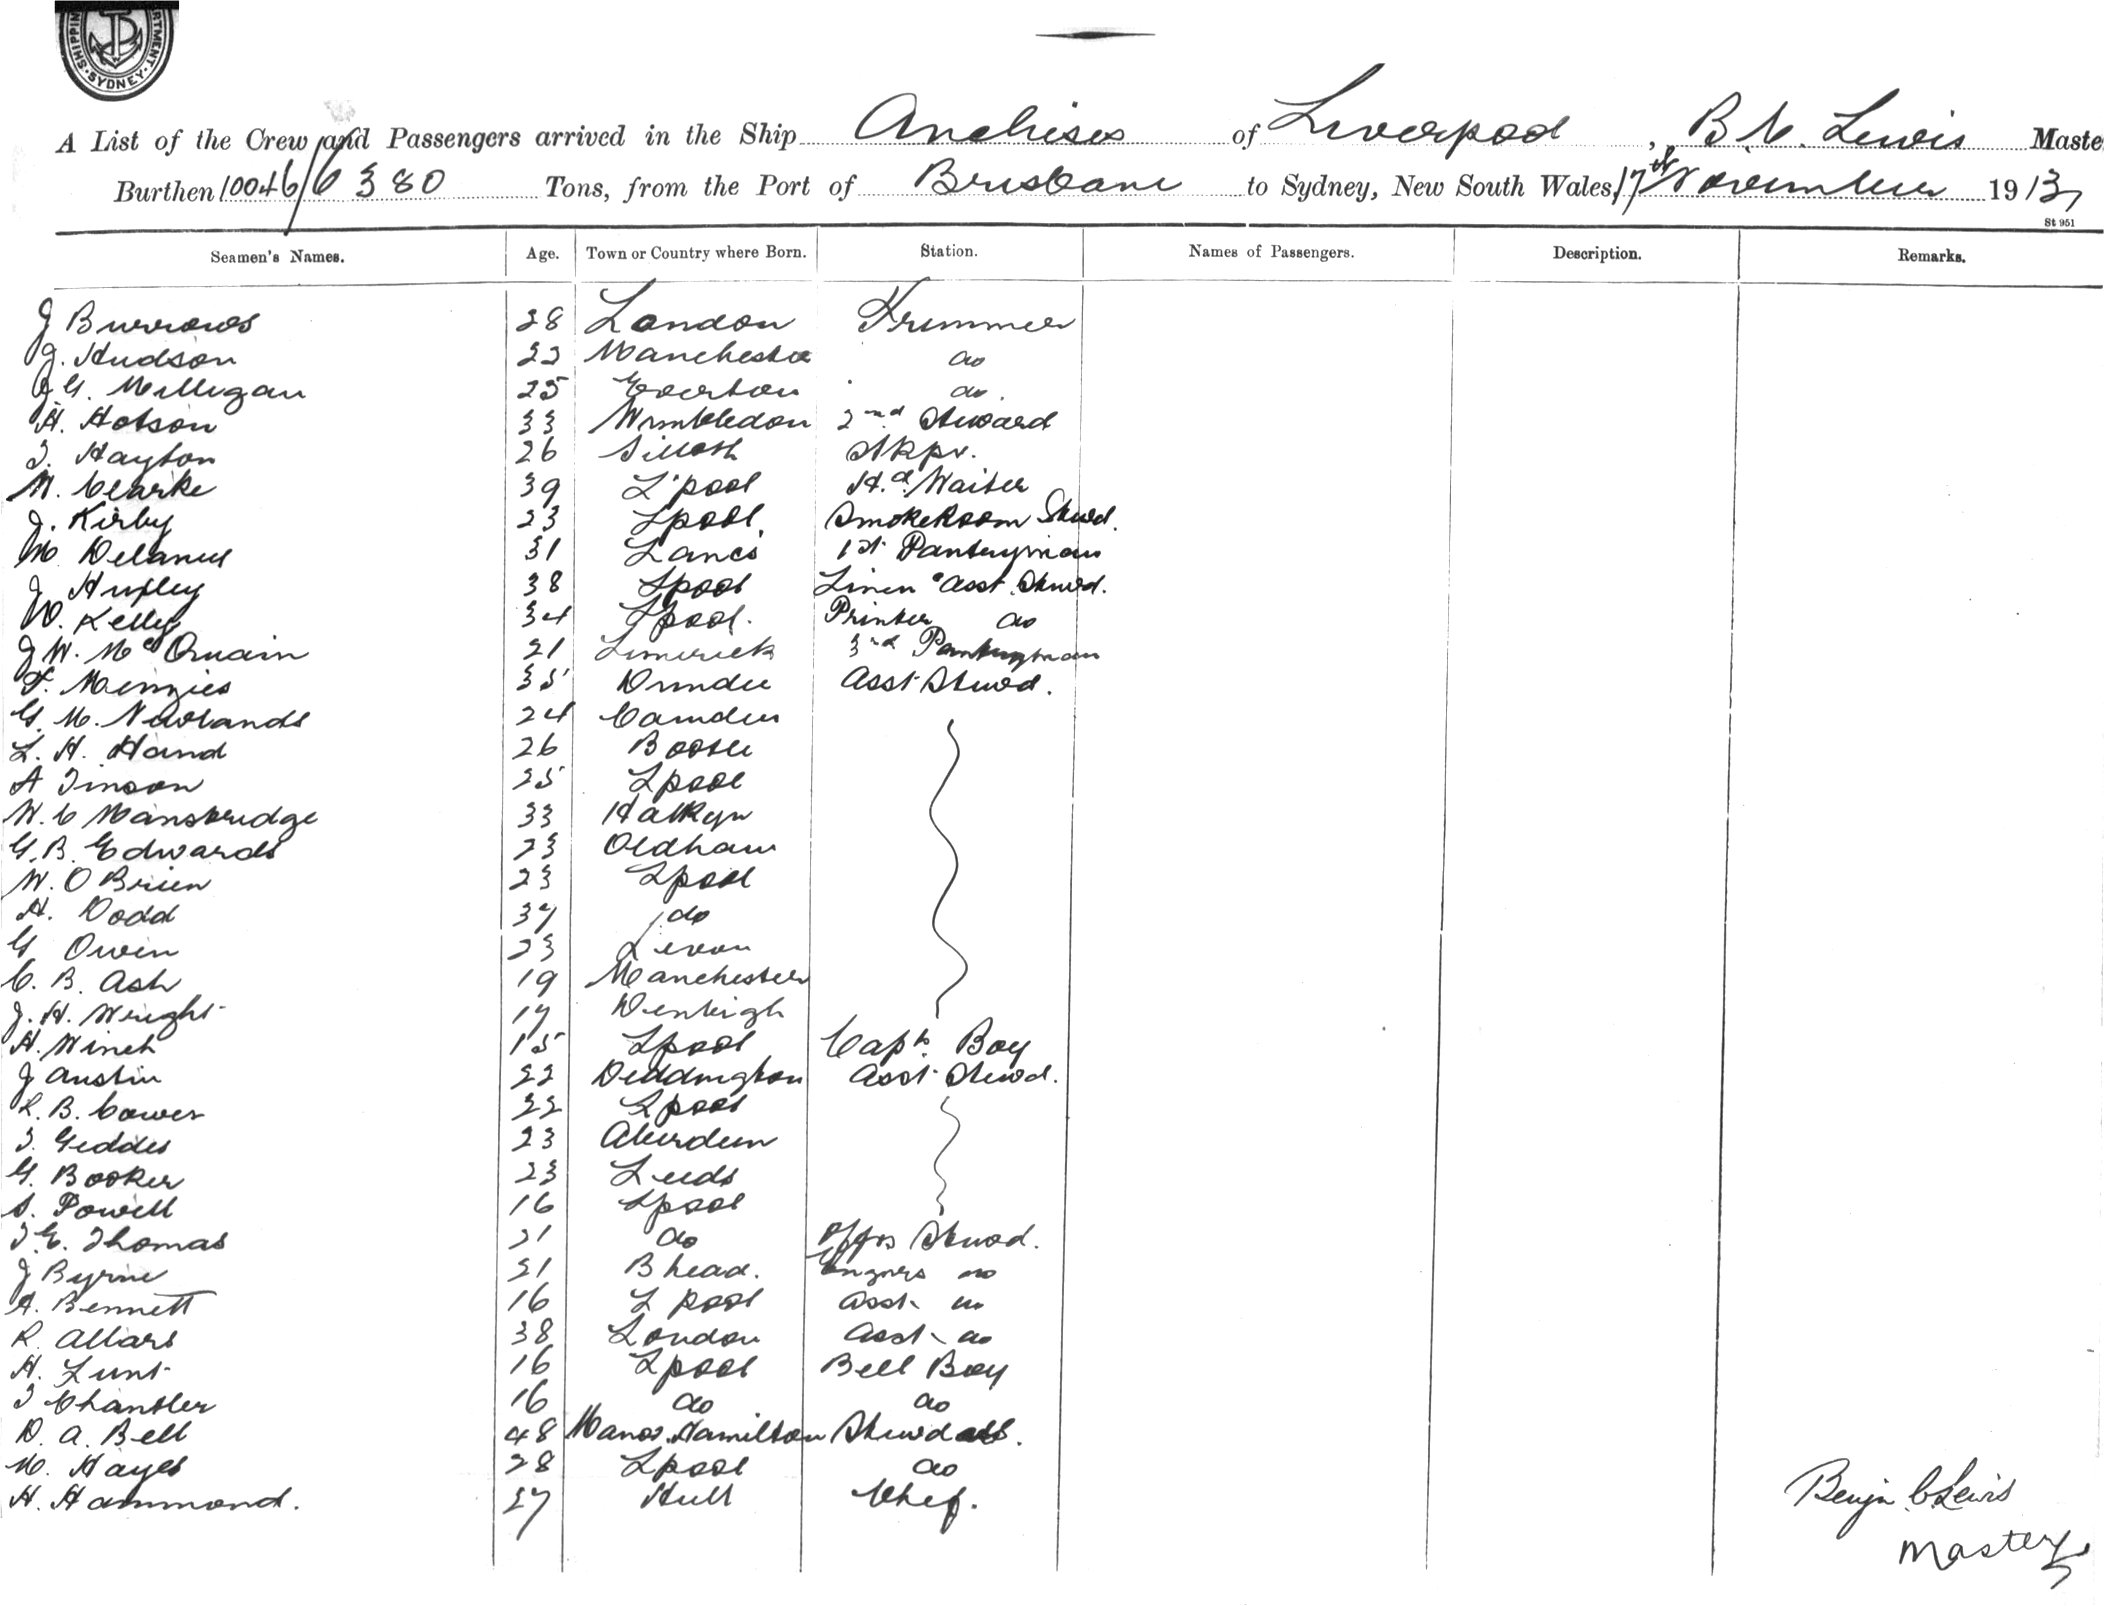 SHIPPING DEPARTMENT · SYDNEY ·
A List of the Crew and Passengers arrived in the Ship Anchises of Liverpool, B. C. Lewis Maste
Burthen 10046/6380 Tons, from the Port of Brisbane to Sydney, New South Wales, 17th November 1913
St 951
Seamen's Names. Age. Town or Country where Born. Station. Names of Passengers. Description. Remarks.
J Burrows 28 London Trimmer
J. Hudson 22 Manchester do
J. G. Milligan 25 Everton do
H. Hotson 33 Wimbledon 2nd Steward
T. Hayton 26 Silloth Skpr.
W. Clarke 39 L'pool Hd. Waiter
J. Kirby 23 Lpool. SmokeRoom Stwd.
M Delaney 31 Lancs 1st Pantryman
J Huxley 38 Lpool Linen Asst. Stwd.
W. Kelly 34 Lpool. Printer do
J W. McQuain 21 Limerick 3rd Pantryman
F. Menzies 35 Dundee Asst Stwd.
G. M. Newlands 24 Camden
L. H. Hand 26 Bootle
A Tinson 25 Lpool
W. C Mansbridge 33 Halkyn
G. B. Edwards 23 Oldham
W. O Brien 23 Lpool
H. Dodd 37 do
G Owen 23
C. B. Ash 19 Manchester
J. H. Wright 17 Denbigh
H. Winch 15 Lpool Capts. Boy
J Austin 22 Deddington Asst Stewd.
R. B. Cower 22 Lpool
T. Geddes 23 Aberdeen
G. Booker 23 Leeds
S. Powell 16 Lpool
T. E. Thomas 21 do Offrs Stwd.
J Byrne 21 Bhead. Engnrs do
A. Bennett 16 Lpool Asst do
R. Allars 38 London Asst do
H. Lunt 16 Lpool Bell Boy
T Chantler 16 do do
D. A. Bell 48 Manor Hamilton Stwdess.
M. Hayes 28 Lpool do
H. Hammond. 27 Hull Chef.
Benjn. C Lewis
Master